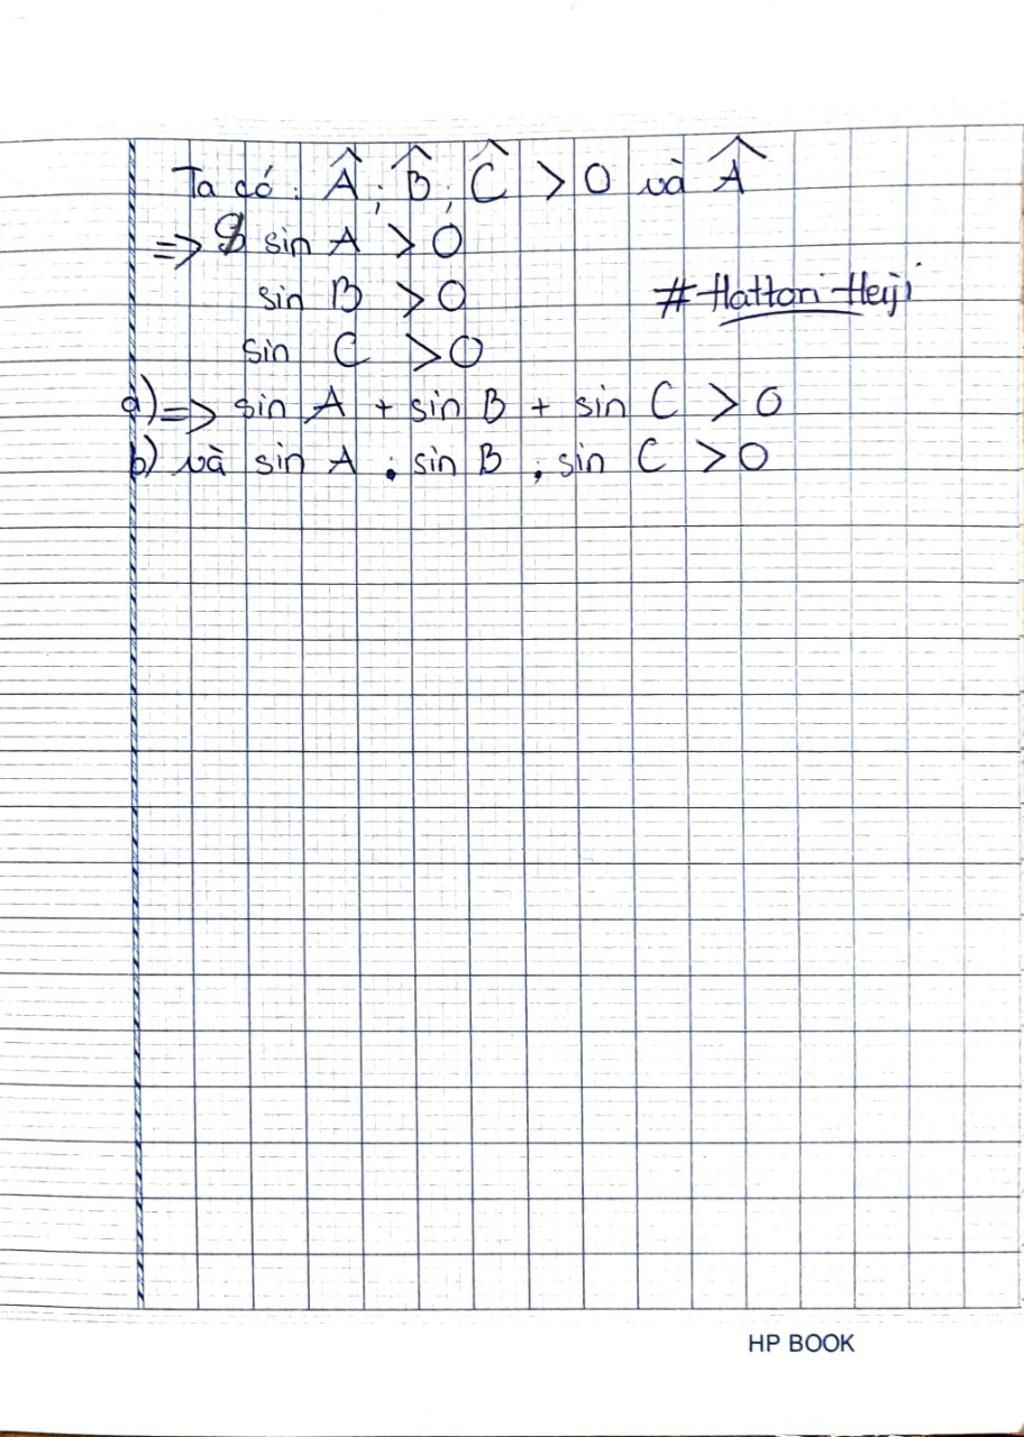 Ta có: Â; B̂; Ĉ > 0 và Â
=> sin A > 0
sin B > 0
# Hattori Heiji
sin C > 0
a) => sin A + sin B + sin C > 0
b) và sin A . sin B . sin C > 0
HP BOOK